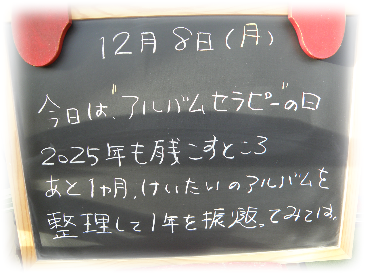 12月8日(月)
今日は、"アルバムセラピー"の日
2025年も残こすところ
あと1ヵ月、けいたいのアルバムを
整理して1年を振返ってみては。